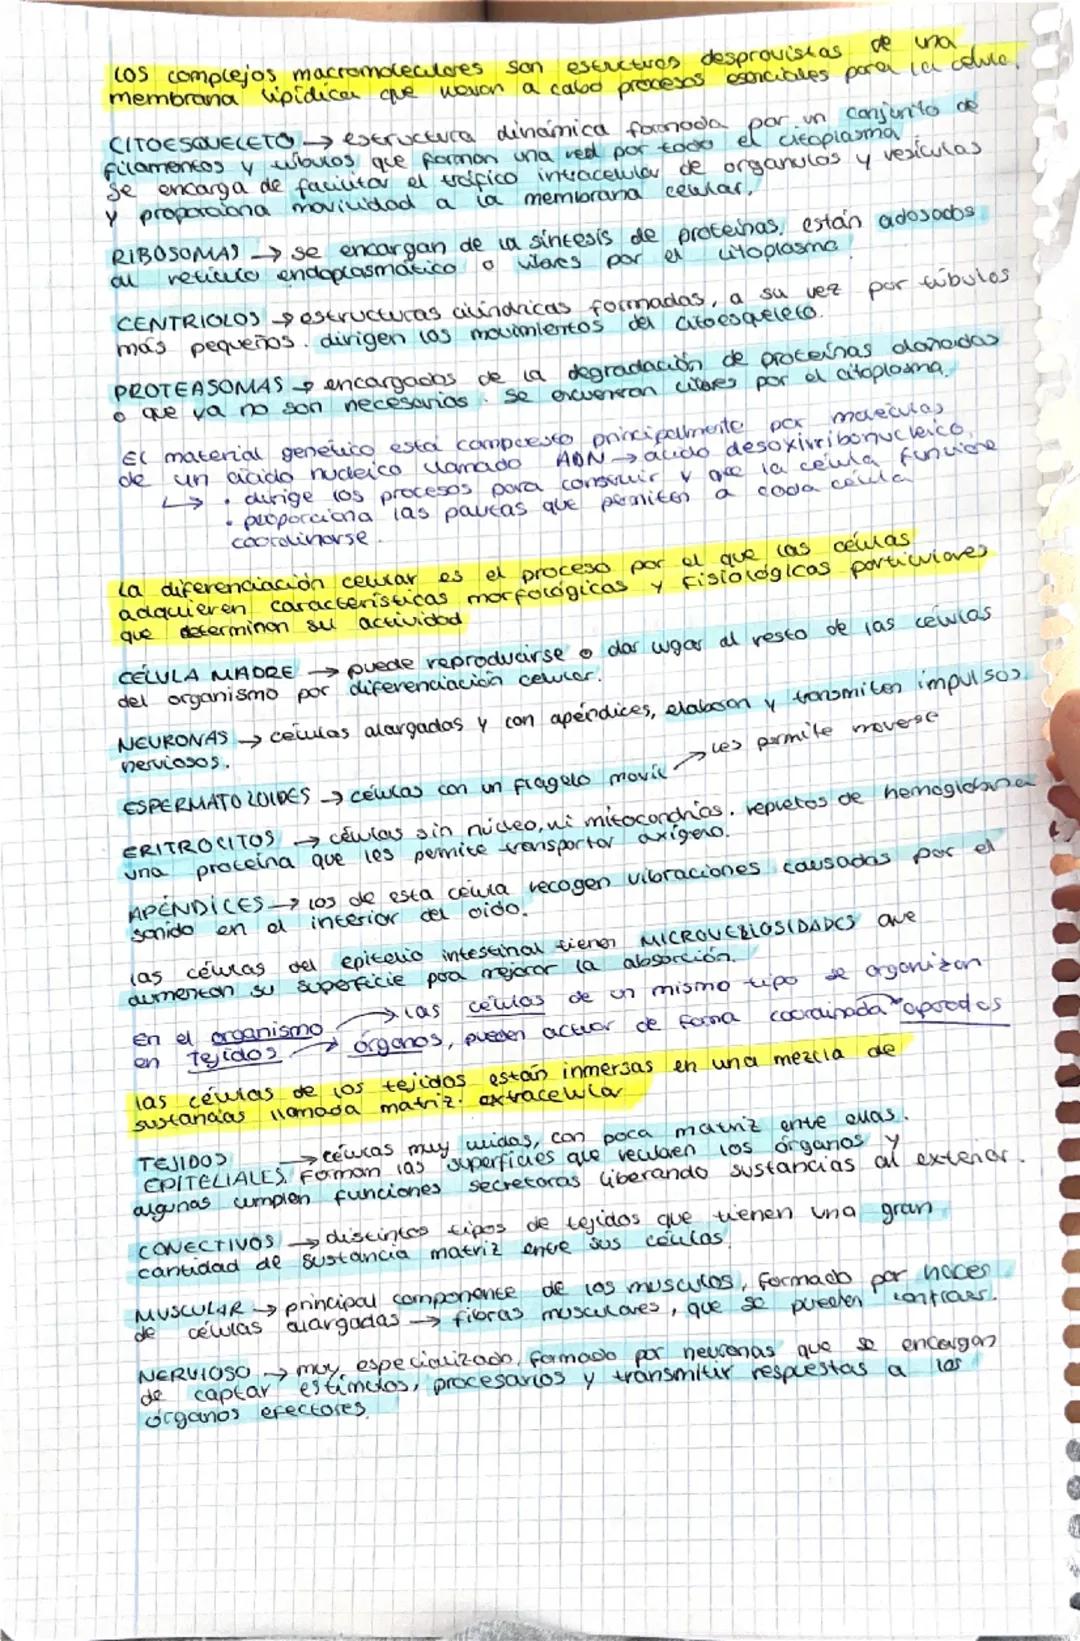 Los complejos macromoleculares son estructuras desprovistas de una
membrana lipídica que llevan a cabo procesos esenciales para la célula.
CITOESQUELETO → estructura dinámica formada por un conjunto de
filamentos y túbulos que forman una red por todo el citoplasma
se encarga de facilitar el tráfico intracelular de organulos y vesículas
y proporciona movilidad a la membrana celular.
RIBOSOMAS → se encargan de la síntesis de proteínas, están adosados
al retículo endoplasmático o libres por el citoplasma
CENTRIOLOS → estructuras cilíndricas formadas, a su vez por túbulos
más pequeños. dirigen los movimientos del citoesqueleto.
PROTEASOMAS → encargados de la degradación de proteínas dañadas
o que ya no son necesarias. se encuentran libres por el citoplasma.
El material genético está compuesto principalmente por moléculas
de un ácido nucleico llamado ADN → ácido desoxirribonucleico.
↳ · dirige los procesos para construir y que la célula funcione
· proporciona las pautas que permiten a cada célula
coordinarse.
La diferenciación celular es el proceso por el que las células
adquieren características morfológicas y fisiológicas particulares
que determinan su actividad
CÉLULA MADRE → puede reproducirse o dar lugar al resto de las células
del organismo por diferenciación celular.
NEURONAS → células alargadas y con apéndices, elaboran y transmiten impulsos
nerviosos.
ESPERMATOZOIDES → células con un flagelo movil → les permite moverse
ERITROCITOS → células sin núcleo, ni mitocondrias. repletos de hemoglobina
una proteína que les permite transportar oxígeno.
APÉNDICES → los de esta célula recogen vibraciones causadas por el
sonido en el interior del oido.
las células del epitelio intestinal tienen MICROVELLOSIDADES que
aumentan su superficie para mejorar la absorción.
En el organismo → las células de un mismo tipo se organizan
en Tejidos → órganos, pueden actuar de forma coordinada → aparatos
las células de los tejidos están inmersas en una mezcla de
sustancias llamada matriz extracelular
TEJIDOS → células muy unidas, con poca matriz entre ellas.
EPITELIALES. Forman las superficies que recubren los órganos y
algunas cumplen funciones secretoras liberando sustancias al exterior.
CONECTIVOS → distintos tipos de tejidos que tienen una gran
cantidad de sustancia matriz entre sus células
MUSCULAR → principal componente de los musculos, formado por haces
de células alargadas → fibras musculares, que se pueden contraer.
NERVIOSO → muy especializado, formado por neuronas que se encargan
de captar estímulos, procesarlos y transmitir respuestas a los
órganos efectores.